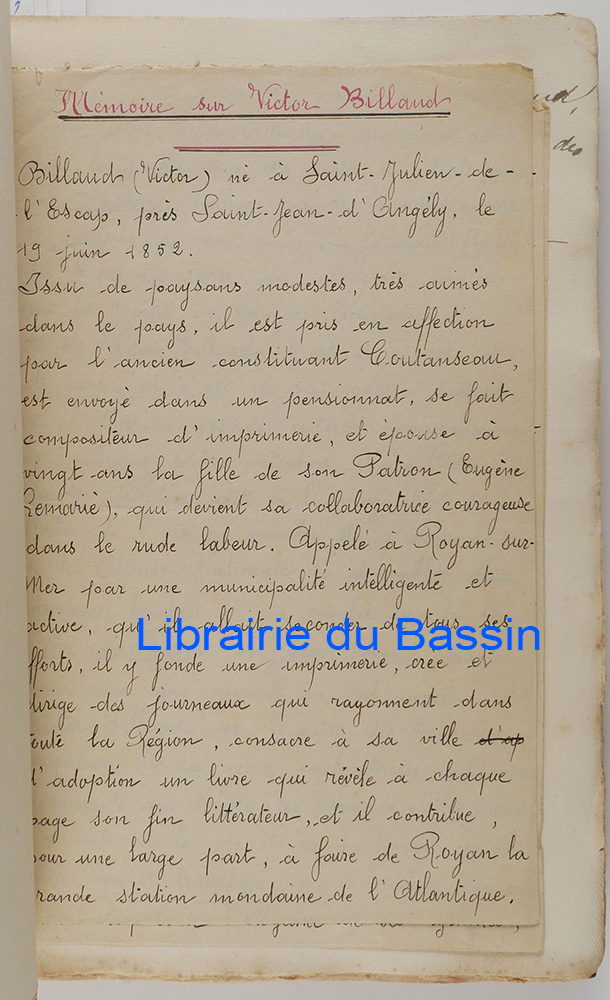 Mémoire sur Victor Billaud
Billaud (Victor) né à Saint-Julien-de-
l'Escap, près Saint-Jean-d'Angély, le
19 juin 1852.
Issu de paysans modestes, très aimés
dans le pays, il est pris en affection
par l'ancien constituant Coutanseau,
est envoyé dans un pensionnat, se fait
compositeur d'imprimerie, et épouse à
vingt ans la fille de son Patron (Eugène
Lemarié), qui devient sa collaboratrice courageuse
dans le rude labeur. Appelé à Royan-sur-
Mer par une municipalité intelligente et
active, qu'il allait seconder de tous ses
Librairie du Bassin
fforts, il y fonde une imprimerie, crée et
dirige des journeaux qui rayonnent dans
toute la Région, consacre à sa ville d'ap
d'adoption un livre qui révèle à chaque
page son fin littérateur, et il contribue,
pour une large part, à faire de Royan la
rande station mondaine de l'Atlantique.
des